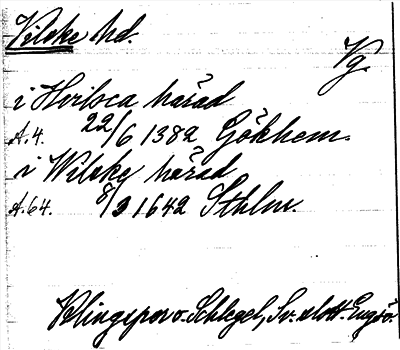 Vilske hd.
Vg.
i Hviloca härad
A.4. 22/6 1382 Gökhem.
i Wilske härad
A.64. 8/2 1642 Sthlm.
Klingspor o. Schlegel, Sv. slott. Engsö.